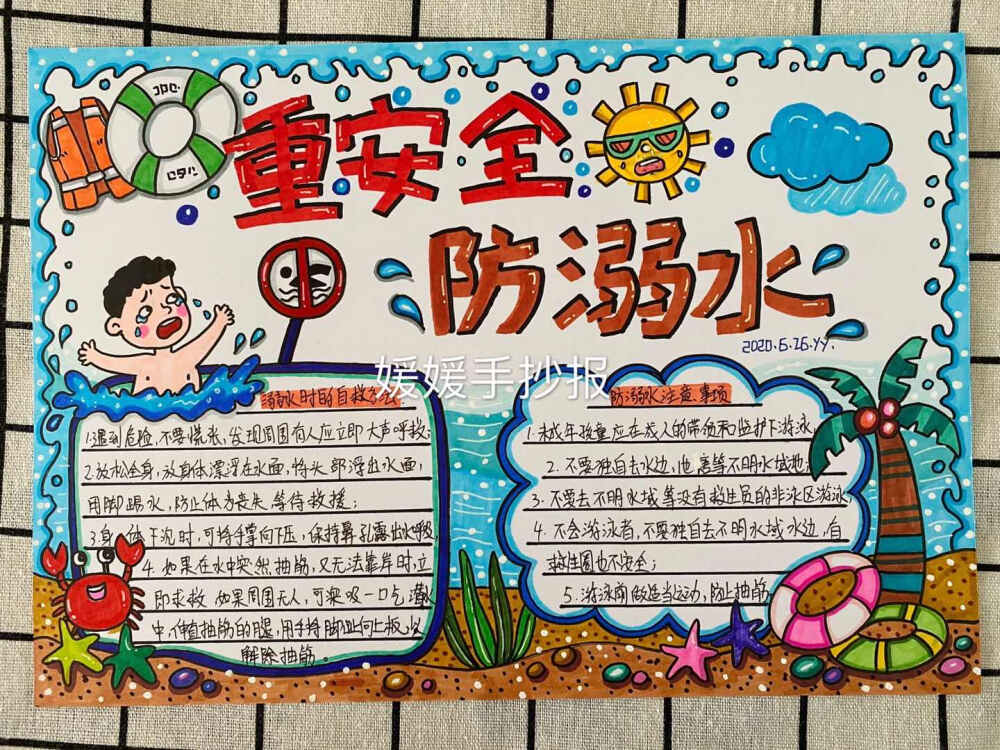 重安全
防溺水
2020.6.26.yy.
媛媛手抄报
溺水时的自救方法
1.遇到危险,不要慌张,发现周围有人应立即大声呼救;
2.放松全身,放身体漂浮在水面,将头部浮出水面,
用脚踢水,防止体力丧失,等待救援;
3.身体下沉时,可将手掌向下压,保持鼻孔露出水
4.如果在水中突然抽筋,又无法靠岸时,立
即求救.如果周围无人,可深吸一口气潜
中,伸直抽筋的腿,用手将脚趾向上扳,以
解除抽筋.
防溺水注意事项
1.未成年孩童应在成人的带领和监护下游泳;
2.不要独自去水边,池塘等不明水域地;
3.不要去不明水域等没有救生员的非泳区游泳;
4.不会游泳者,不要独自去不明水域水边,有
救生圈也不安全;
5.游泳前做适当运动,防止抽筋